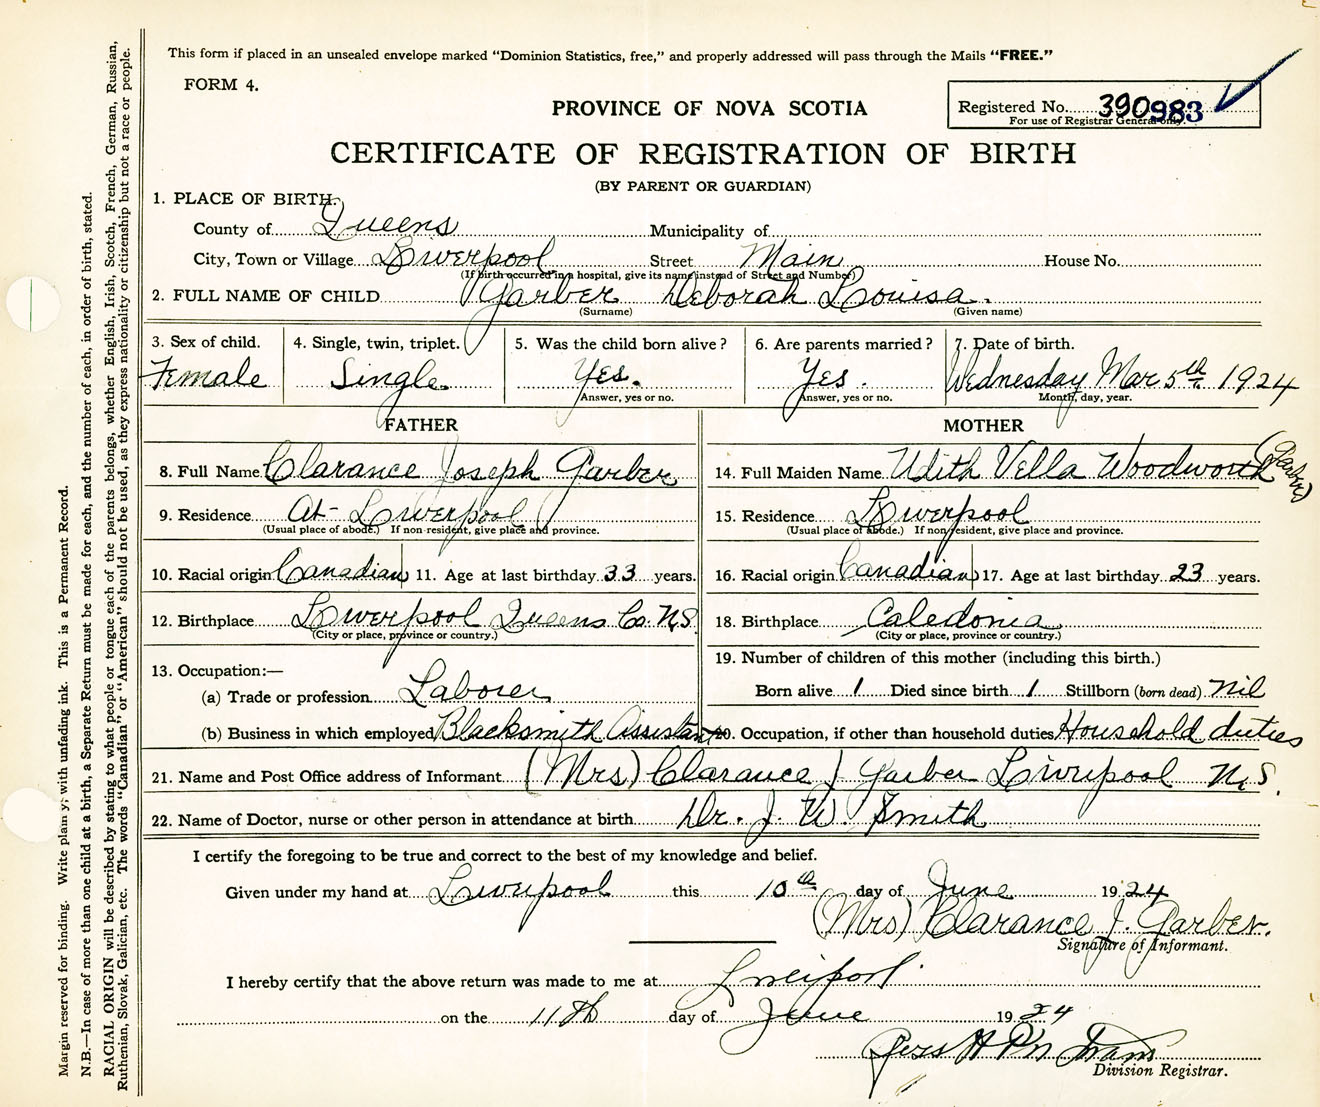 This form if placed in an unsealed envelope marked "Dominion Statistics, free," and properly addressed will pass through the Mails "FREE."
FORM 4.
Registered No. 390983
For use of Registrar General only.
PROVINCE OF NOVA SCOTIA
CERTIFICATE OF REGISTRATION OF BIRTH
(BY PARENT OR GUARDIAN)
1. PLACE OF BIRTH
County of Queens Municipality of
City, Town or Village Liverpool Street Main House No.
(If birth occurred in a hospital, give its name instead of Street and Number)
2. FULL NAME OF CHILD Garber Deborah Louisa.
(Surname) (Given name)
3. Sex of child. 4. Single, twin, triplet. 5. Was the child born alive? 6. Are parents married? 7. Date of birth.
Female Single. Yes. Yes. Wednesday Mar 5th 1924
Answer, yes or no. Answer, yes or no. Month, day, year.
FATHER MOTHER
8. Full Name Clarance Joseph Garber 14. Full Maiden Name Udith Vella Woodworth (Garber)
9. Residence At - Liverpool 15. Residence Liverpool
(Usual place of abode.) If non-resident, give place and province. (Usual place of abode.) If non-resident, give place and province.
10. Racial origin Canadian 11. Age at last birthday 33 years. 16. Racial origin Canadian 17. Age at last birthday 23 years.
12. Birthplace Liverpool Queens Co. N.S. 18. Birthplace Caledonia
(City or place, province or country.) (City or place, province or country.)
13. Occupation:— 19. Number of children of this mother (including this birth.)
(a) Trade or profession Laborer Born alive 1 Died since birth 1 Stillborn (born dead) nil
(b) Business in which employed Blacksmith Assistant 20. Occupation, if other than household duties Household duties
21. Name and Post Office address of Informant (Mrs) Clarance J Garber Liverpool N.S.
22. Name of Doctor, nurse or other person in attendance at birth Dr. J. W. Smith
I certify the foregoing to be true and correct to the best of my knowledge and belief.
Given under my hand at Liverpool this 10th day of June 1924
(Mrs) Clarance J. Garber.
Signature of Informant.
I hereby certify that the above return was made to me at Liverpool
on the 11th day of June 1924
Division Registrar.
Margin reserved for binding. Write plainly; with unfading ink. This is a Permanent Record.
N.B.—In case of more than one child at a birth, a Separate Return must be made for each, and the number of each, in order of birth, stated.
RACIAL ORIGIN will be described by stating to what people or tongue each of the parents belongs, whether English, Irish, Scotch, French, German, Russian,
Ruthenian, Slovak, Galician, etc. The words "Canadian" or "American" should not be used, as they express nationality or citizenship but not a race or people.